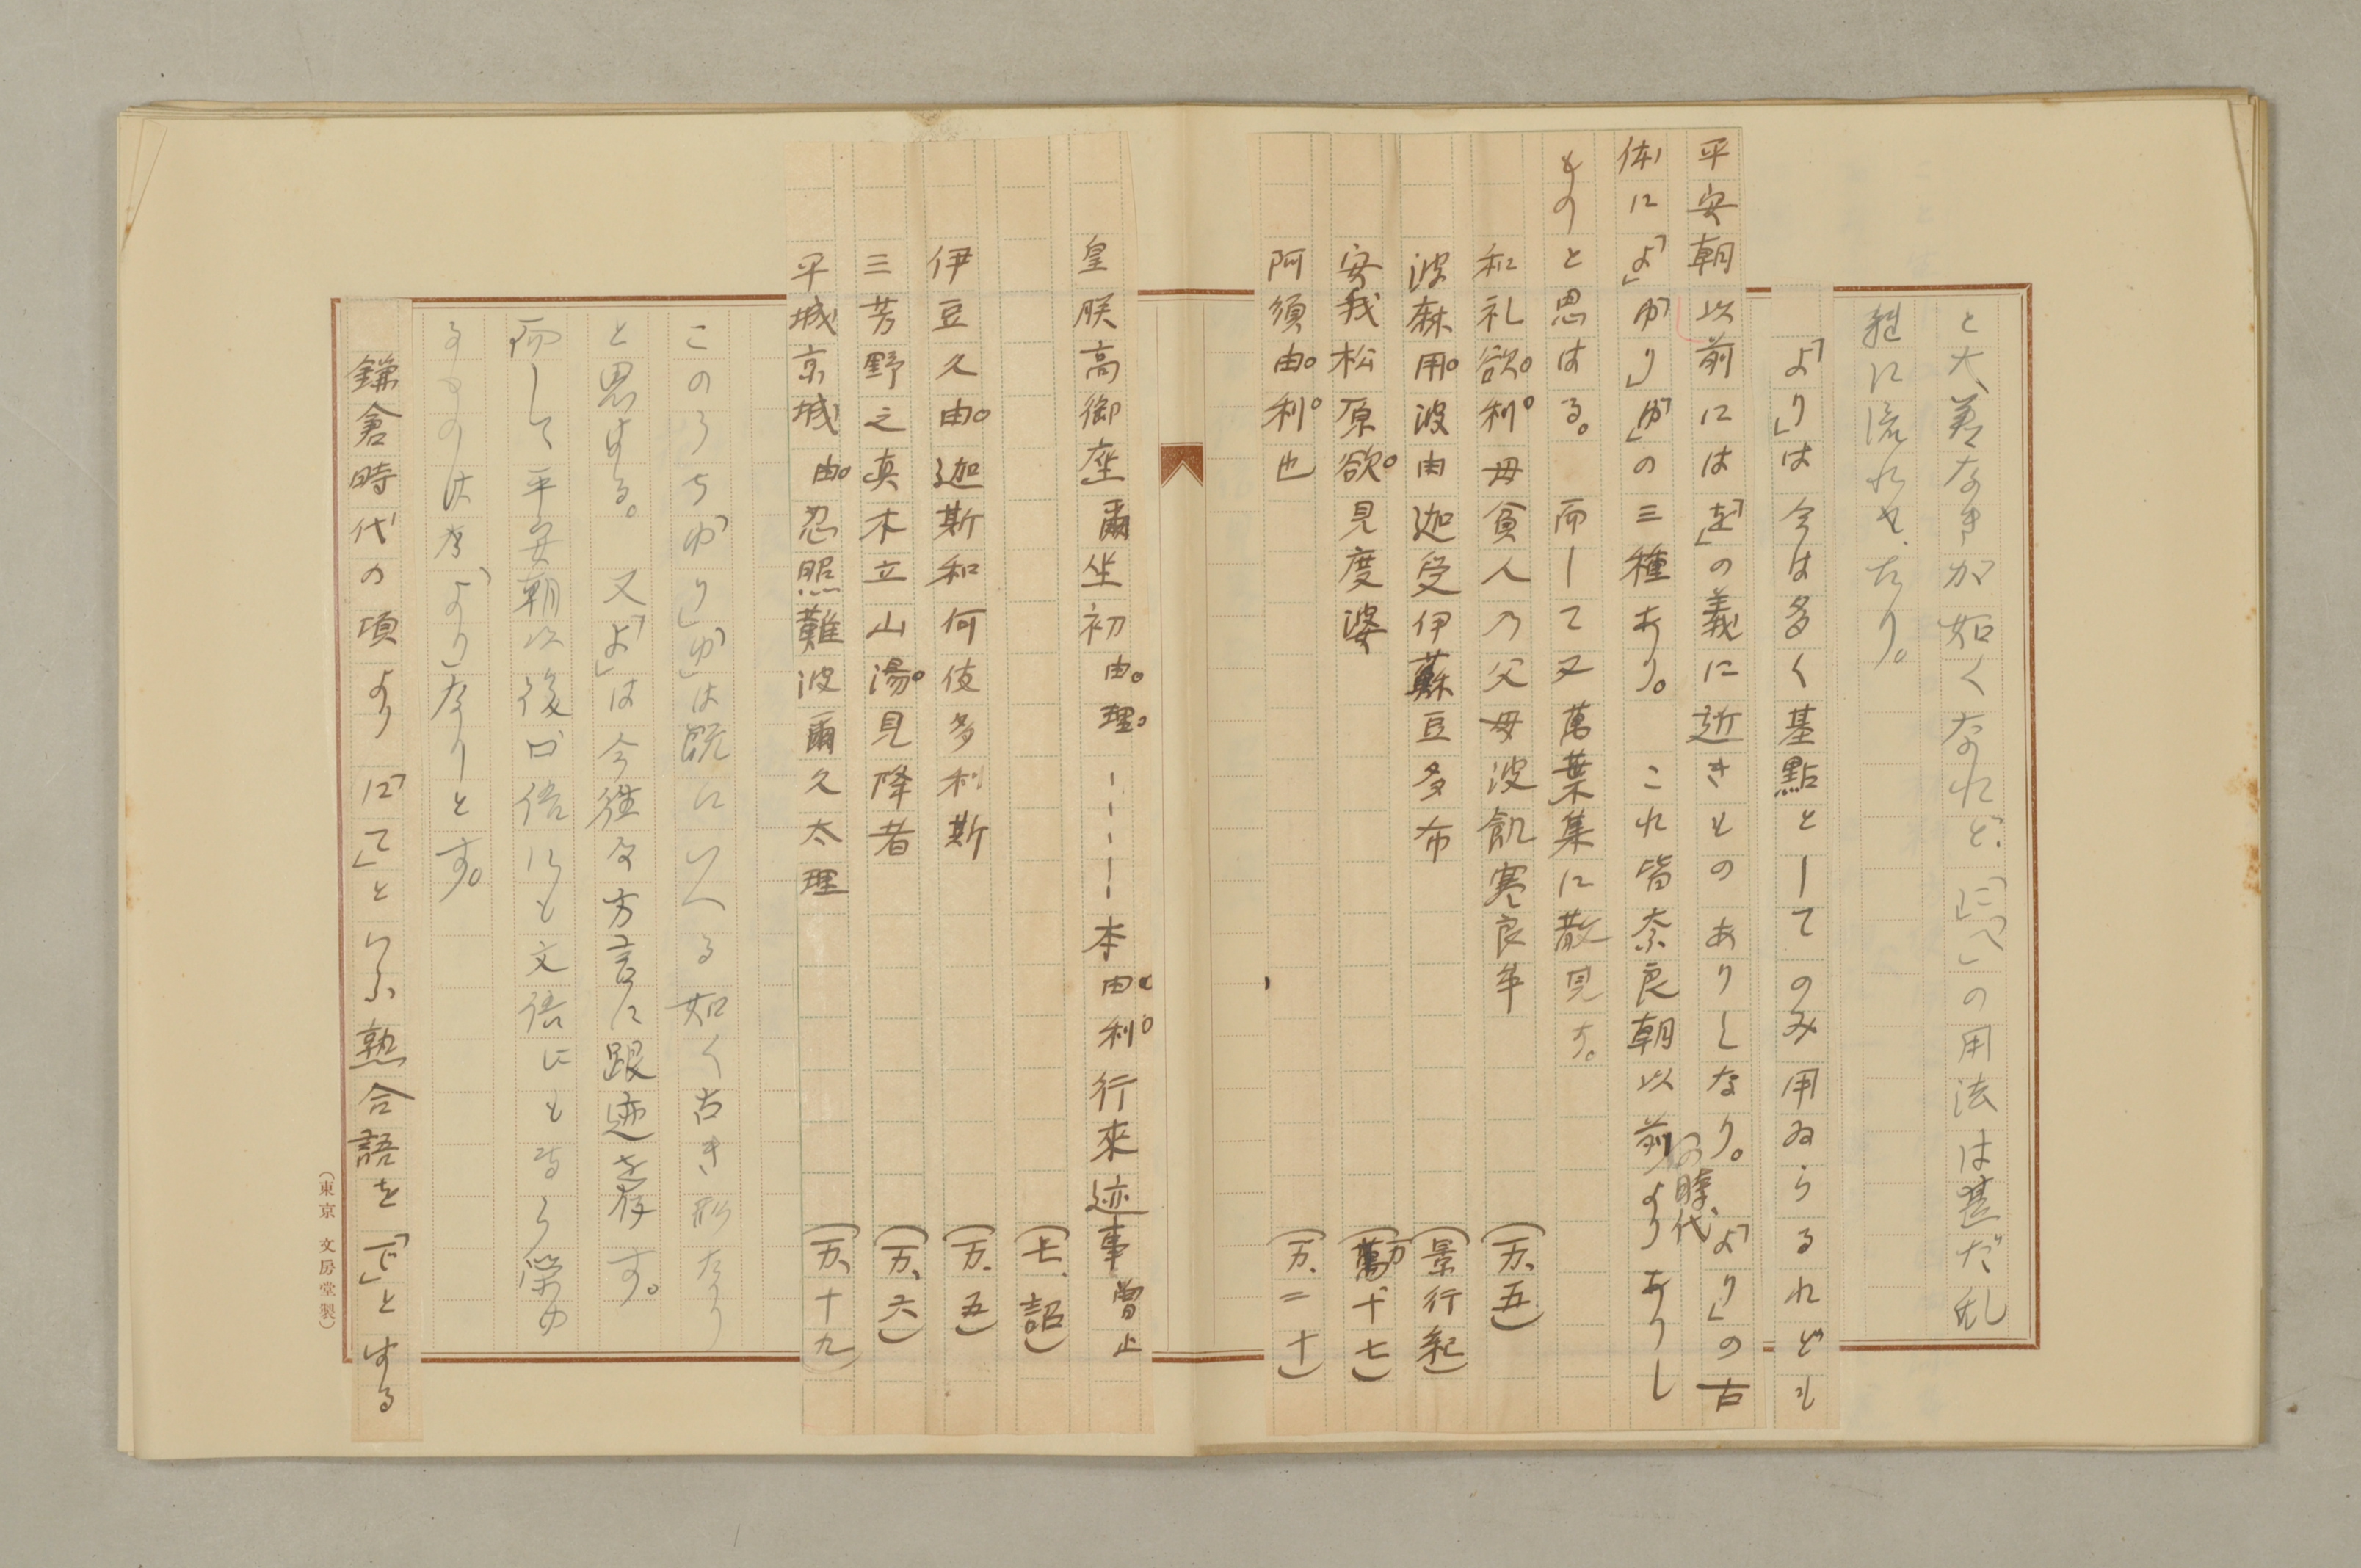 と大差なきが如くなれど、「に」「へ」の用法は甚だ乱
雑に流れもたり。
「より」は今は多く基點としてのみ用ゐらるれども
平安朝以前には「を」の義に近きものありしなり。「より」の古
体に「よ」「ゆり」「ゆ」の三種あり。これ皆奈良朝以前の時代よりありし
ものと思はる。而して又萬葉集に散見す。
和礼欲利母貧人乃父母波飢寒良牟(万、五)
波麻用波由迦受伊蘇豆多布(景行紀)
安我松原欲見度婆(萬十七)
阿須由利也(万、二十)
皇朕高御座爾坐初由理ーーーー本由利行來迹事曽止
(七、詔)
伊豆久由迦斯和何伎多利斯(万、五)
三芳野之真木立山湯見降者(万、六)
平城京城由忍照難波爾久太理(万、十九)
このうち「ゆり」「ゆ」は既にいへる如く古き形なり
と思はる。又「よ」は今猶方言に跟迹を存す。
而して平安朝以後口語にも文語にも専ら榮ゆ
るものは「より」なりとす。
鎌倉時代の項より「にて」といふ熟合語を「で」とする
(東京 文房堂製)